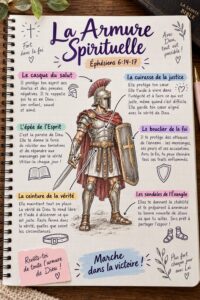 La Armure
Spirituelle
Éphésiens 6:14-17
Fort
dans la foi
Avec
Dieu,
tout est
possible !
Le casque du salut
Il protège ton esprit des
doutes et des pensées
négatives. Il te rappelle
qui tu es en Dieu :
son enfant, sauvé et
aimé.
La cuirasse de la justice
Elle protège ton cœur.
Elle t'aide à vivre dans
l'intégrité et à faire ce qui est
juste, même quand c'est difficile.
Elle garde ton cœur aligné
avec la vérité de Dieu.
L'épée de l'Esprit
C'est la parole de Dieu.
Elle te donne la force
de résister aux tentations
et de répondre aux
mensonges par la vérité.
Utilise-la chaque jour !
Le bouclier de la foi
Il te protège des attaques
de l'ennemi : les mensonges,
les peurs et les accusations.
Avec la foi, tu peux éteindre
tous ses traits enflammés.
La ceinture de la vérité
Elle maintient tout en place.
La vérité de Dieu te rend libre
et t'aide à discerner ce qui
est juste. Reste ferme dans
la vérité, quelles que soient
les circonstances.
Les sandales de l'Évangile
Elles te donnent la stabilité
et te préparent à annoncer
la bonne nouvelle de Jésus
où que tu ailles. Sois prêt à
partager l'espoir !
Revêts-toi
de toute l'armure
de Dieu !
Marche
dans la victoire !
Plus fort
chaque jour
avec Lui